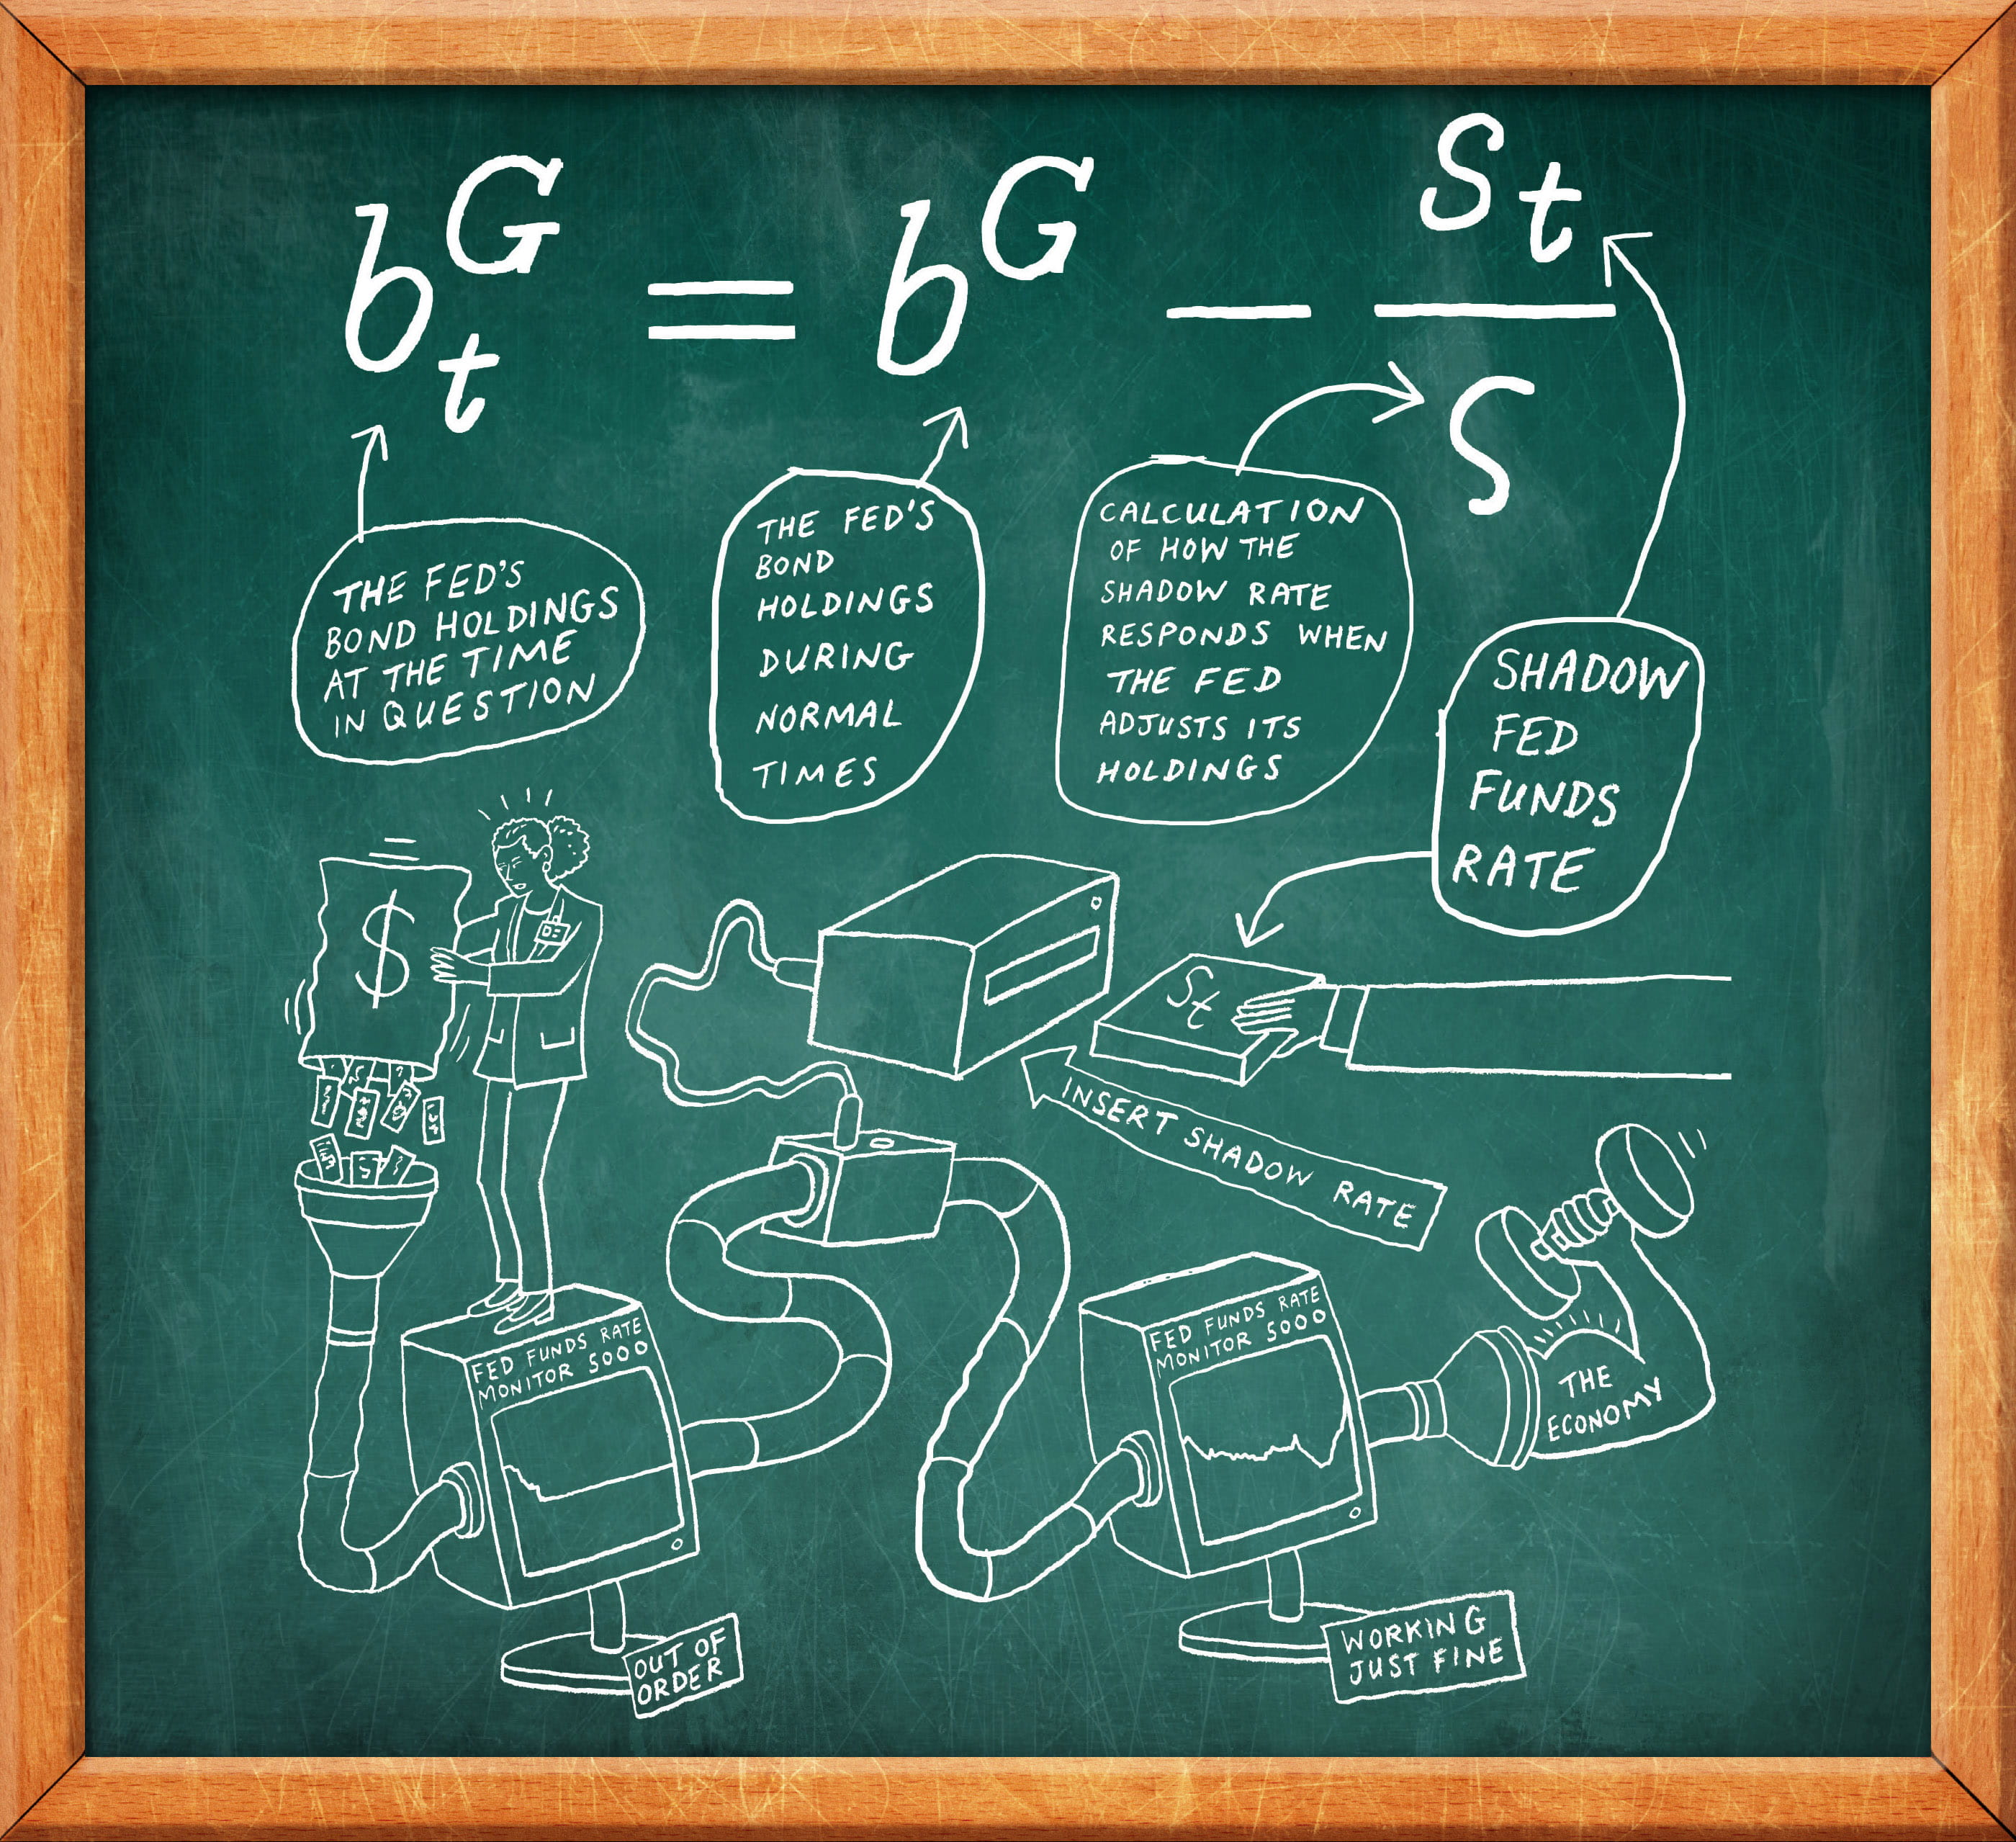 b^G_t = b^G − s_t / ς
THE FED'S
BOND HOLDINGS
AT THE TIME
IN QUESTION
THE FED'S
BOND
HOLDINGS
DURING
NORMAL
TIMES
CALCULATION
OF HOW THE
SHADOW RATE
RESPONDS WHEN
THE FED
ADJUSTS ITS
HOLDINGS
SHADOW
FED
FUNDS
RATE
$
St
INSERT SHADOW RATE
FED FUNDS RATE
MONITOR 5000
OUT OF
ORDER
FED FUNDS RATE
MONITOR 5000
WORKING
JUST FINE
THE
ECONOMY